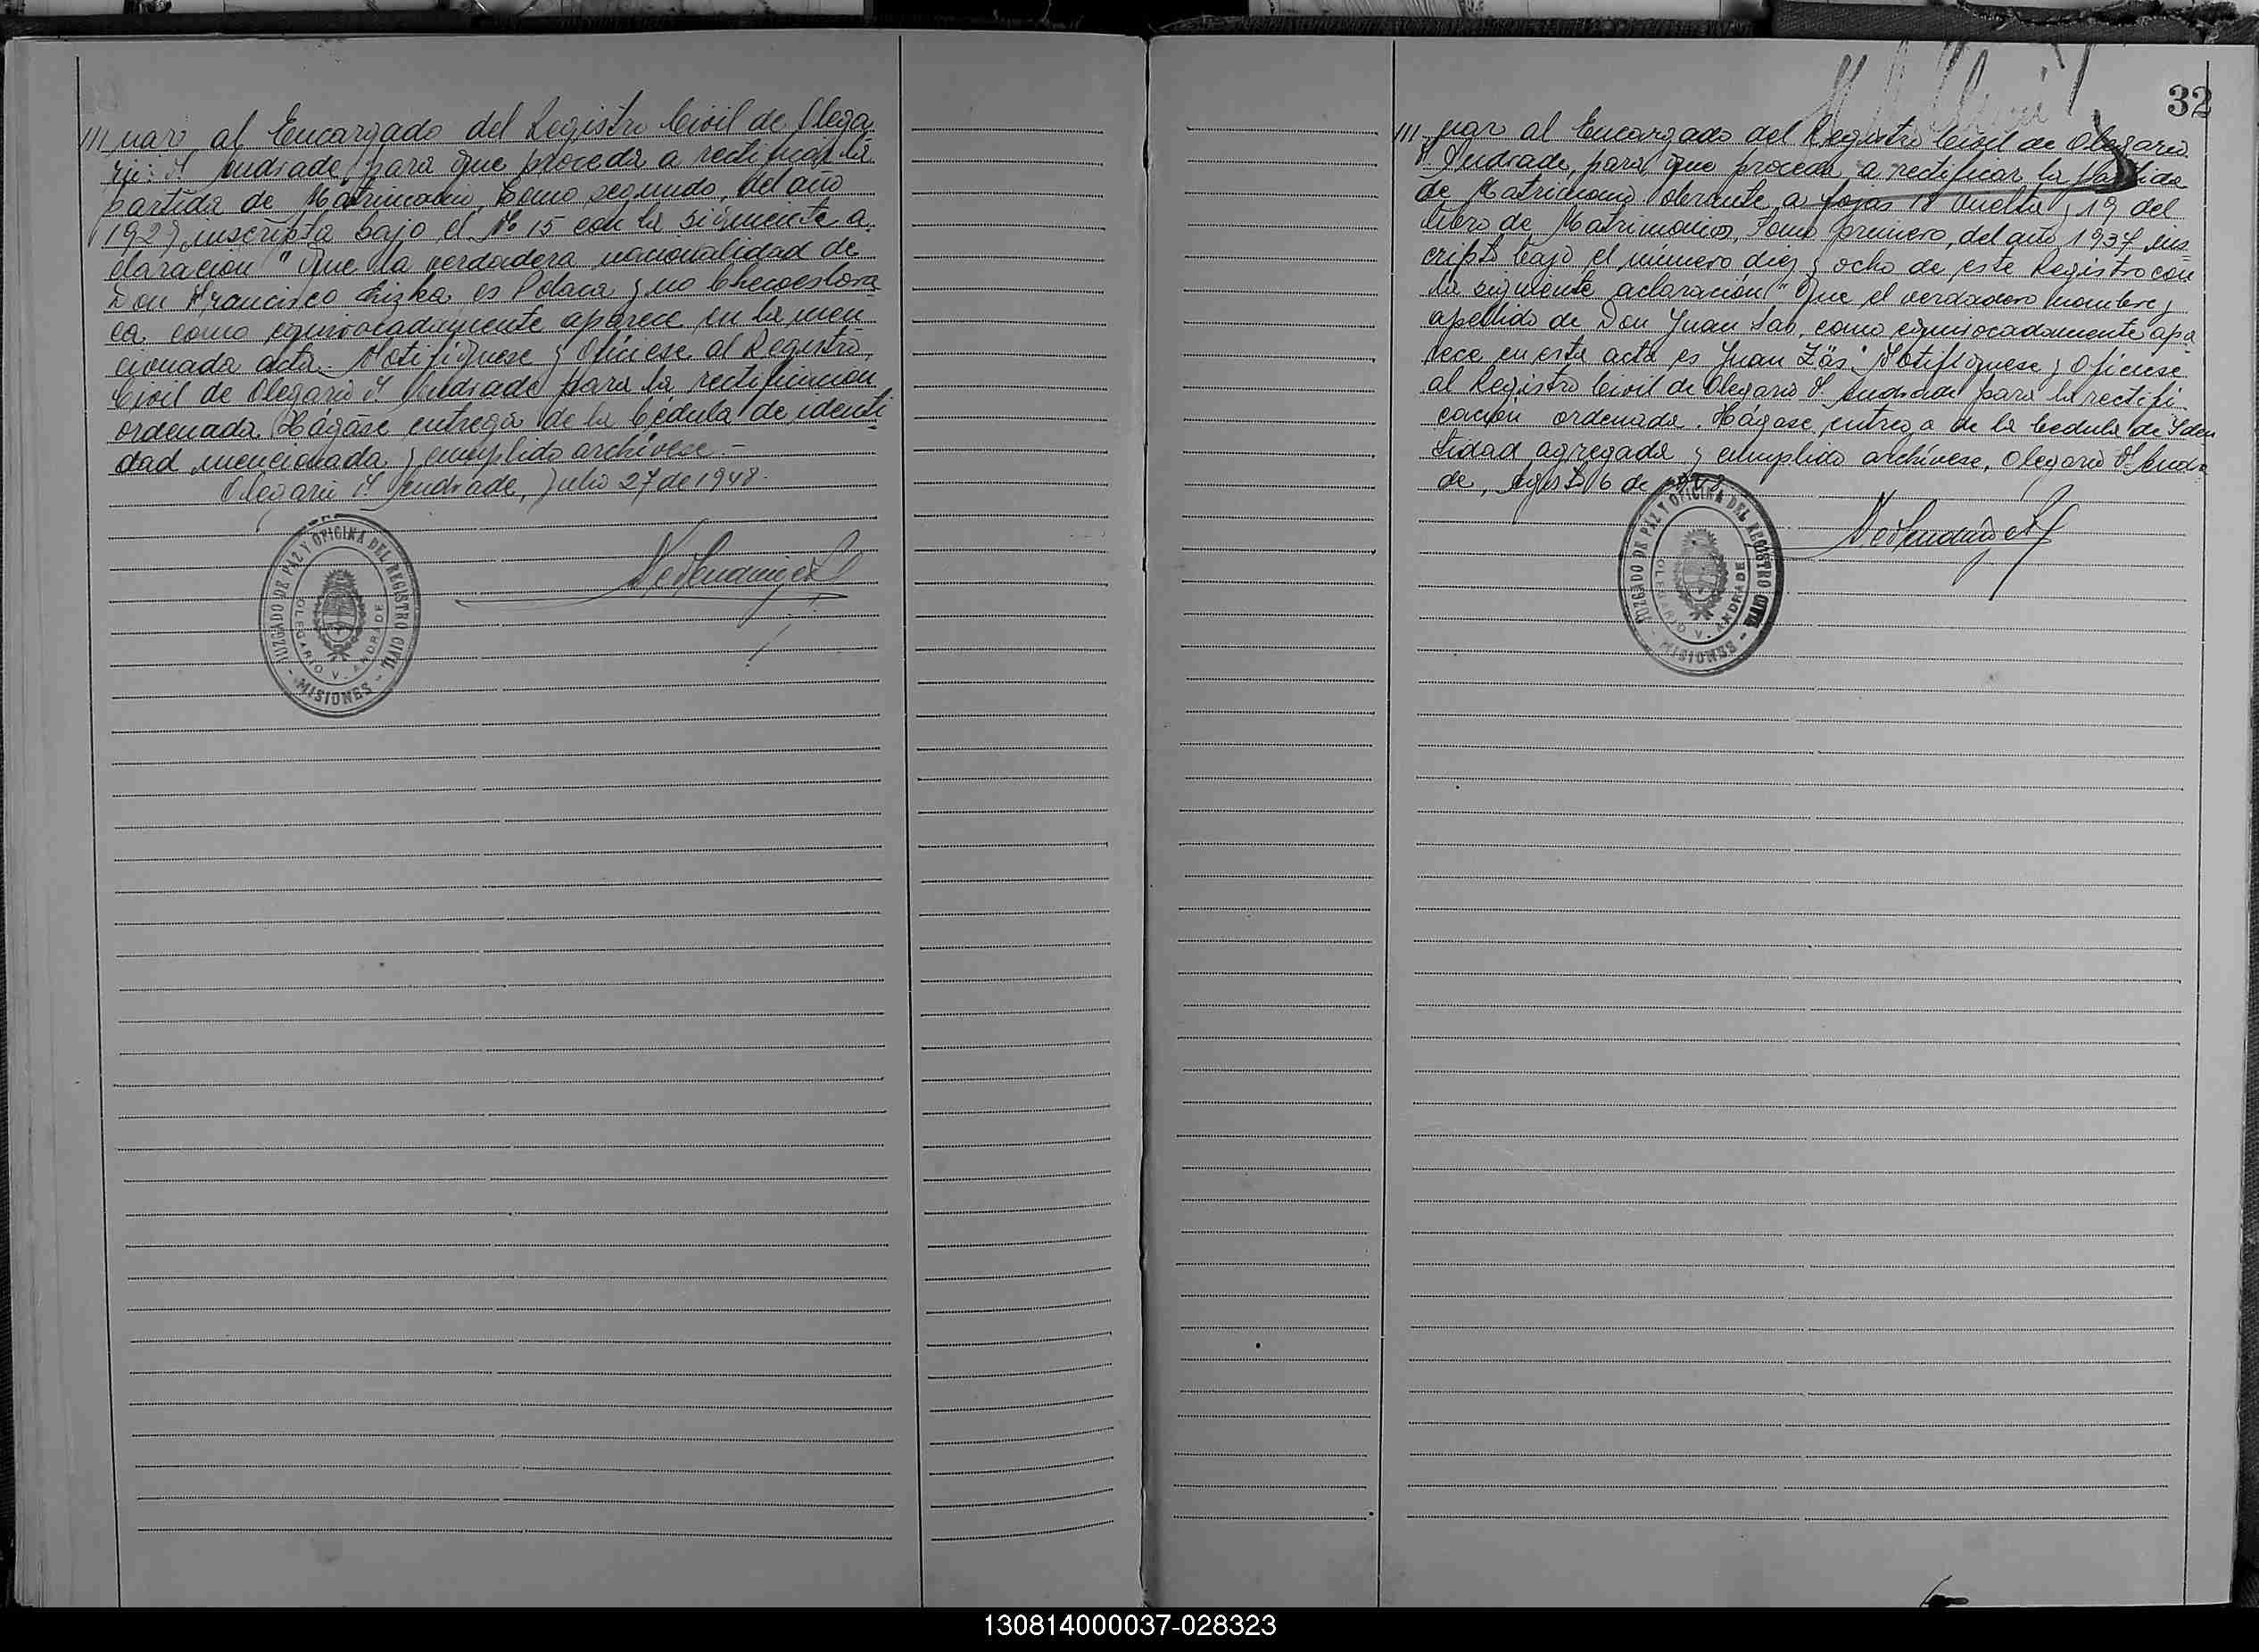 /// nar al Encargado del Registro Civil de Olega
rio V. Andrade, para que proceda a rectificar la
partida de Matrimonio, tomo segundo, del año
1927, inscripta bajo el No 15 con la siguiente a
claracion "Que la verdadera nacionalidad de
Don Francisco Chizka es Polaca y no Checoeslova
ca como equivocadamente aparece en la men
cionada acta. Notifíquese y Ofíciese al Registro
Civil de Olegario V. Andrade para la rectificación
ordenada. Hágase entrega de la Cedula de identi
dad mencionada y cumplido archívese.-
Olegario V. Andrade, Julio 27 de 1948.
JUZGADO DE PAZ Y OFICINA DEL REGISTRO CIVIL
OLEGARIO V. ANDRADE
- MISIONES -
32
/// nar al Encargado del Registro Civil de Olegario
V. Andrade, para que proceda a rectificar la partida
de Matrimonio obrante a fojas 18 vuelta y 19 del
libro de Matrimonios, Tomo primero, del año 1937, ins
cripto bajo el número diez y ocho de este Registro con
la siguiente aclaración "Que el verdadero nombre y
apellido de Don Juan Sas, como equivocadamente apa
rece en esta acta es Juan Zäs". Notifíquese y Ofíciese
al Registro Civil de Olegario V. Andrade para la rectifi
cación ordenada. Hágase entrega de la Cedula de Iden
tidad agregada y cumplido archívese. Olegario V. Andra
de, Agosto 6 de 1948
JUZGADO DE PAZ Y OFICINA DEL REGISTRO CIVIL
OLEGARIO V. ANDRADE
- MISIONES -
130814000037-028323